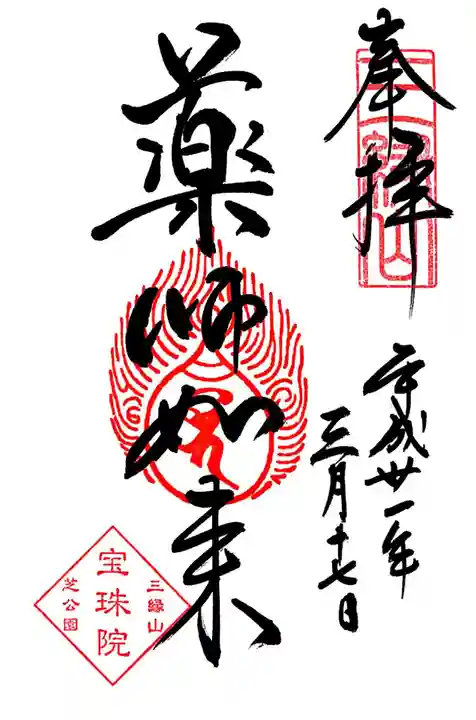 奉拝
三縁山
平成廿一年
三月十七日
薬師如来
三縁山
宝珠院
芝公園